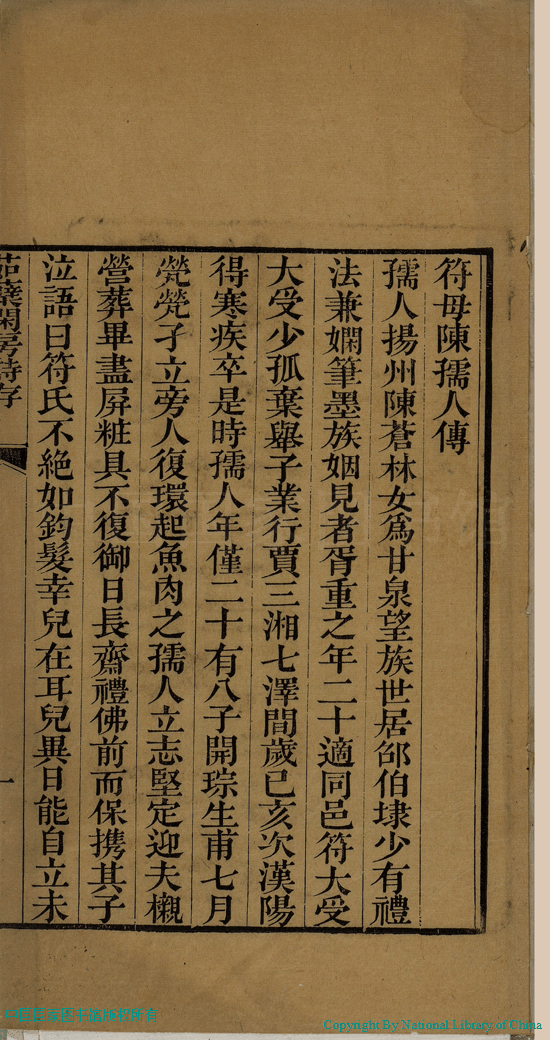 符母陳孺人傳
孺人揚州陳蒼林女爲甘泉望族世居邵伯埭少有禮
法兼嫻筆墨族姻見者胥重之年二十適同邑符大受
大受少孤棄舉子業行賈三湘七澤間歲已亥次漢陽
得寒疾卒是時孺人年僅二十有八子開琮生甫七月
煢煢孑立旁人復環起魚肉之孺人立志堅定迎夫櫬
營葬畢盡屏粧具不復御日長齋禮佛前而保携其子
泣語曰符氏不絶如鈞髮幸兒在耳兒異日能自立未
閑房詩存
一
Copyright By National Library of China